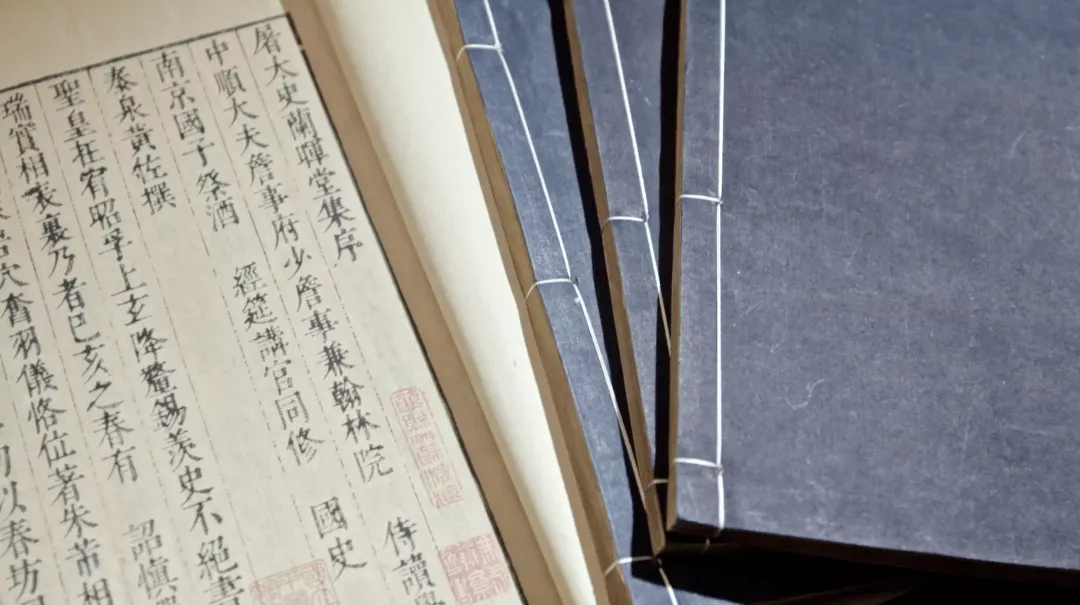 屠太史蘭暉堂集序
中順大夫詹事府少詹事兼翰林院 侍讀
南京國子祭酒 經筵講官同修 國史
泰泉黃佐撰
聖皇在宥昭孚上玄降釐錫羨史不絕書
瑞實相表裏乃者已亥之春有 詔慎
穴奮羽儀恪位著朱芾相
以春坊